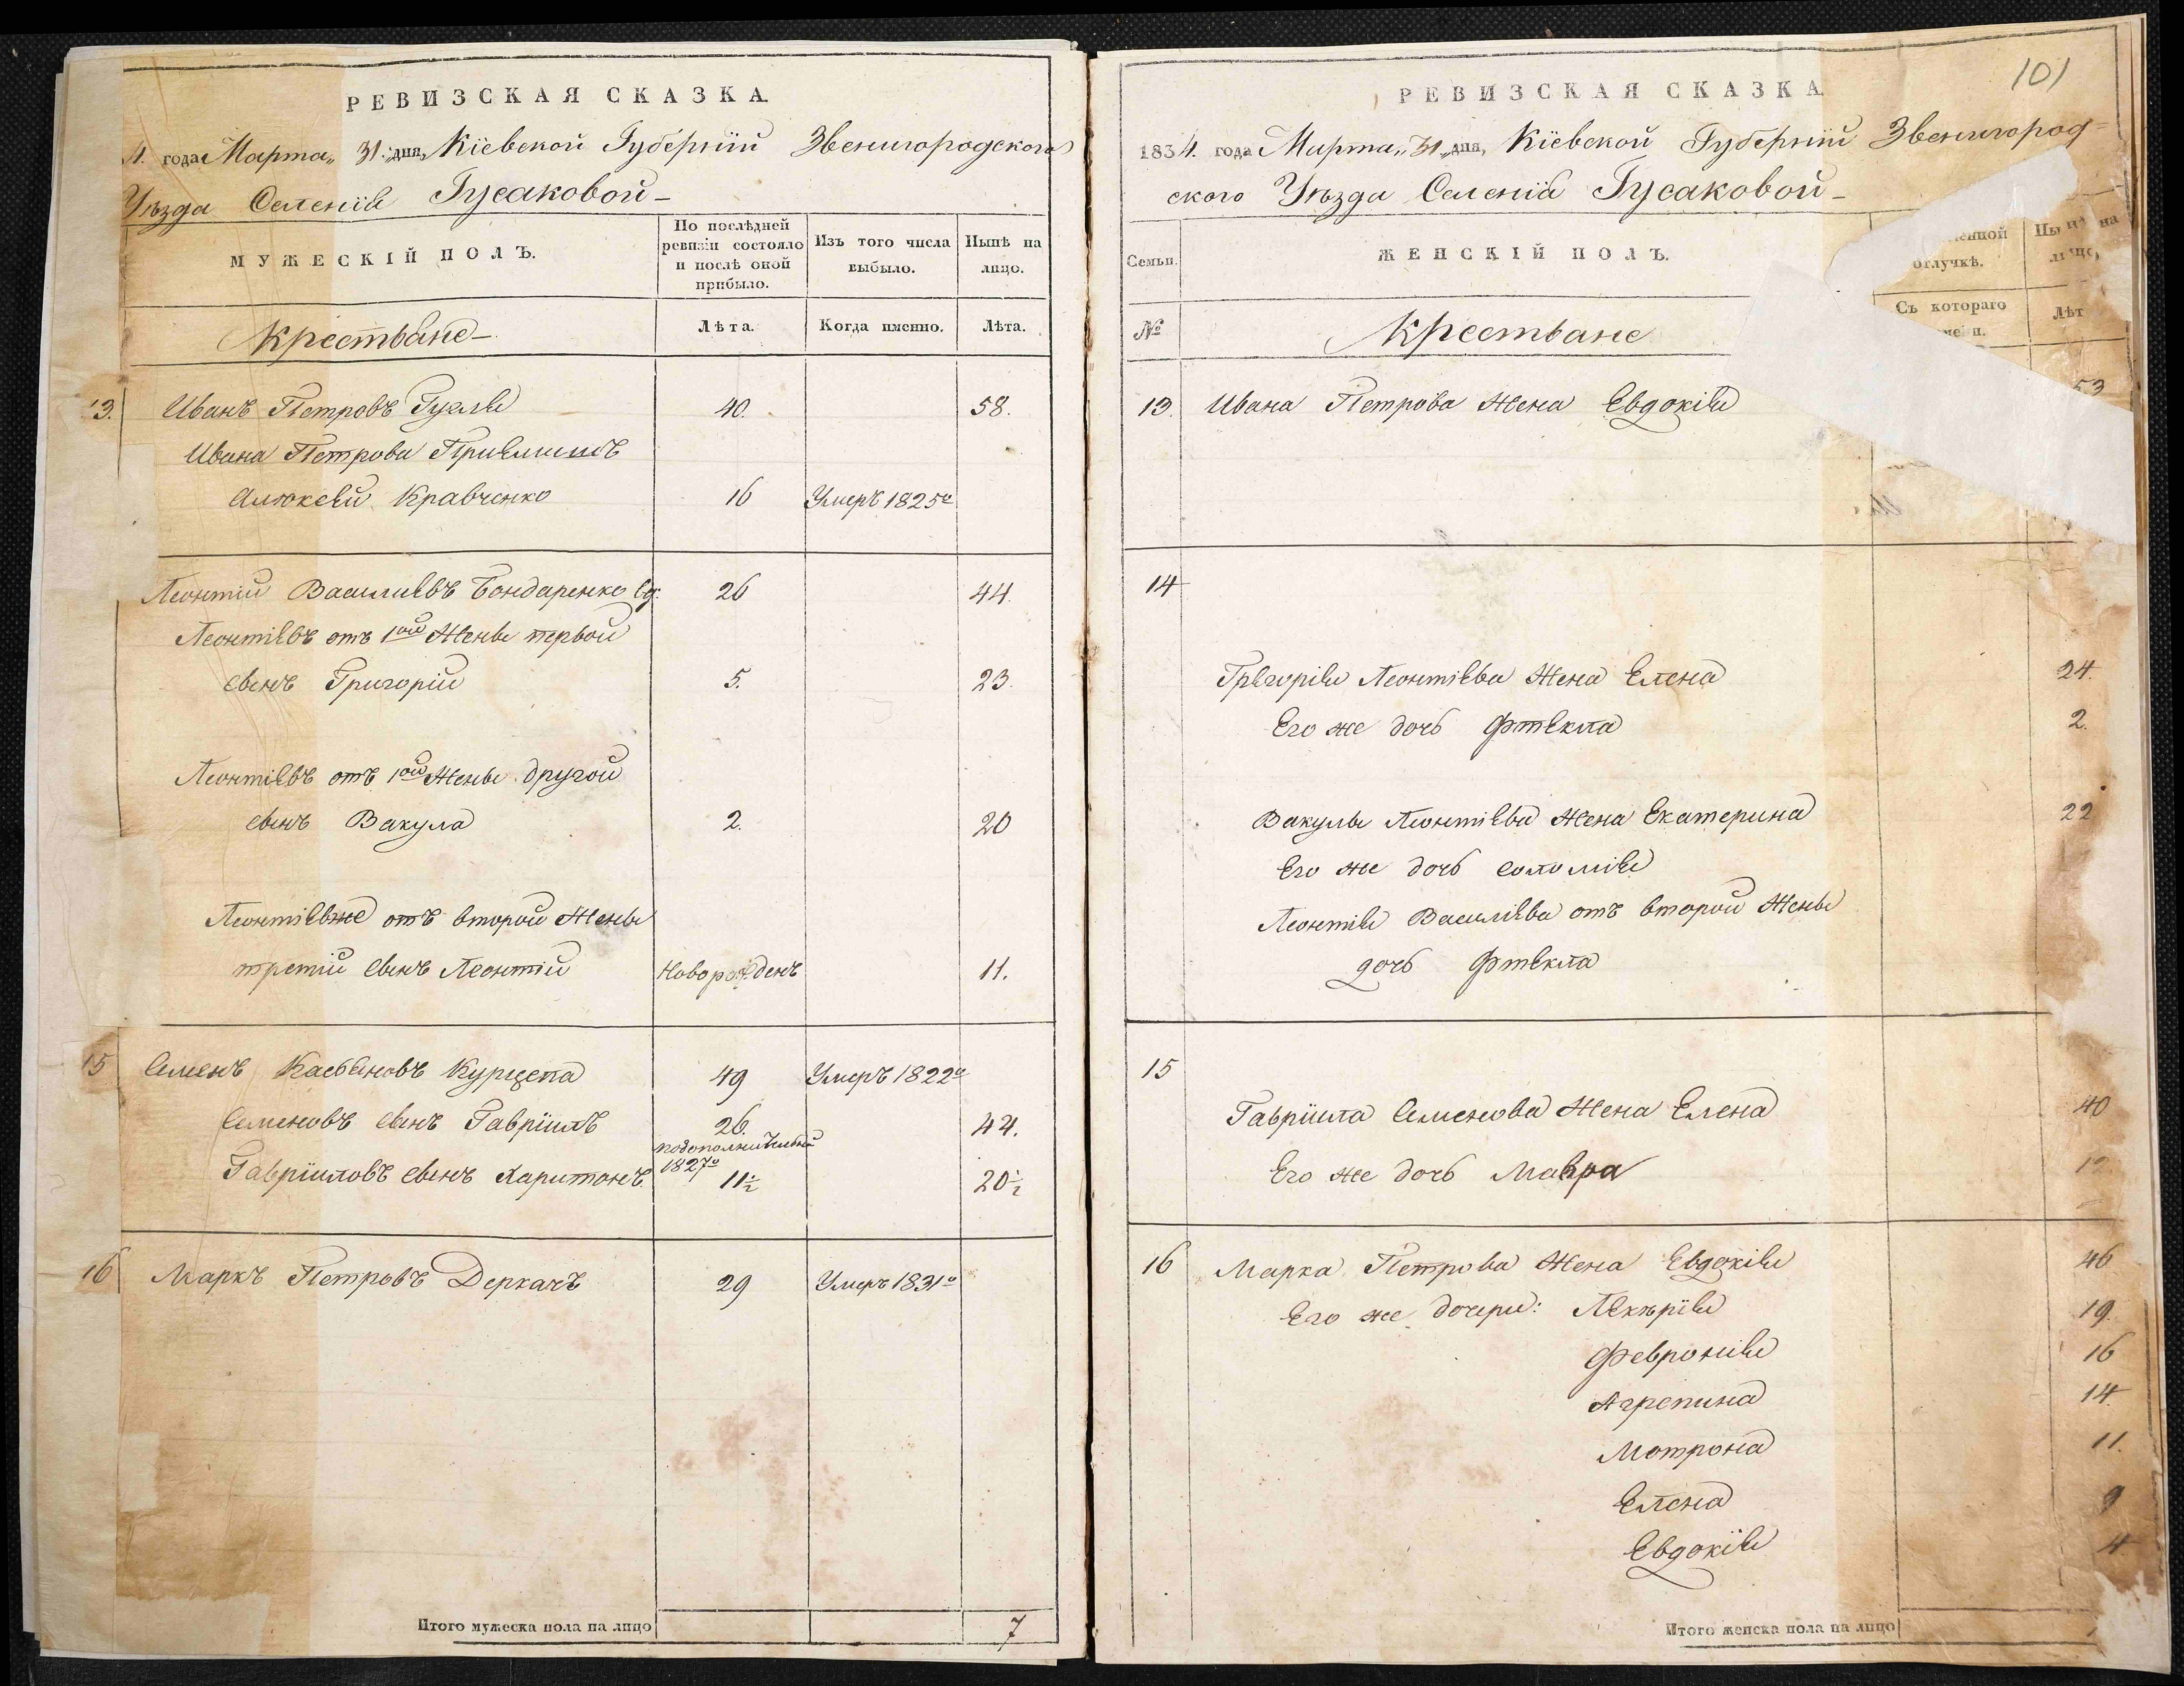 РЕВИЗСКАЯ СКАЗКА.
4. года Марта „31„ дня, Кіевской Губерніи Звенигородского
Уѣзда Селенія Гусаковой
МУЖЕСКІЙ ПОЛЪ.
По послѣдней ревизіи состояло и послѣ оной прибыло.
Изъ того числа выбыло.
Нынѣ на лицо.
Крестьяне
Лѣта.
Когда именно.
Лѣта.
13. Иванъ Петровъ 40. 58.
Ивана Петрова Пріемышъ
Алексѣй Кравченко 16 Умеръ 1825го
Леонтій Васильевъ Бондаренко 26 44.
Леонтіевъ отъ 1ой Жены первой
сынъ Григорій 5. 23.
Леонтіевъ отъ 1ой Жены другой
сынъ Вакула 2. 20
отъ второй Жены
третій сынъ Леонтій Новорожденъ 11.
15 Семенъ Касьяновъ 49 Умеръ 1822го
Семеновъ сынъ Гавріилъ 26. 44.
1827го
Гавріиловъ сынъ Харитонъ 11½ 20½
16 Маркъ Петровъ Деркачъ 29 Умеръ 1831го
Итого мужеска пола на лицо 7
101
РЕВИЗСКАЯ СКАЗКА
1834. года Марта „31„ дня, Кіевской Губерніи Звенигород=
ского Уѣзда Селенія Гусаковой
Семьи.
ЖЕНСКІЙ ПОЛЪ.
отлучкѣ.
на
№
Крестьяне
Съ котораго
13. Ивана Петрова Жена Евдокія 53
14
Григорія Леонтіева Жена Елена 24.
Его же дочь Фтекла 2.
Вакулы Леонтіева Жена Екатерина 22
Его же дочь Соломія
Леонтія Василіева отъ второй Жены
дочь Фтекла
15
Гавріила Семенова Жена Елена 40
Его же дочь Мавра
16 Марка Петрова Жена Евдокія 46
Его же дочери: 19.
Февронія 16
Агрепина 14.
Мотрона 11.
Елена 9
Евдокія 4
Итого женска пола на лицо